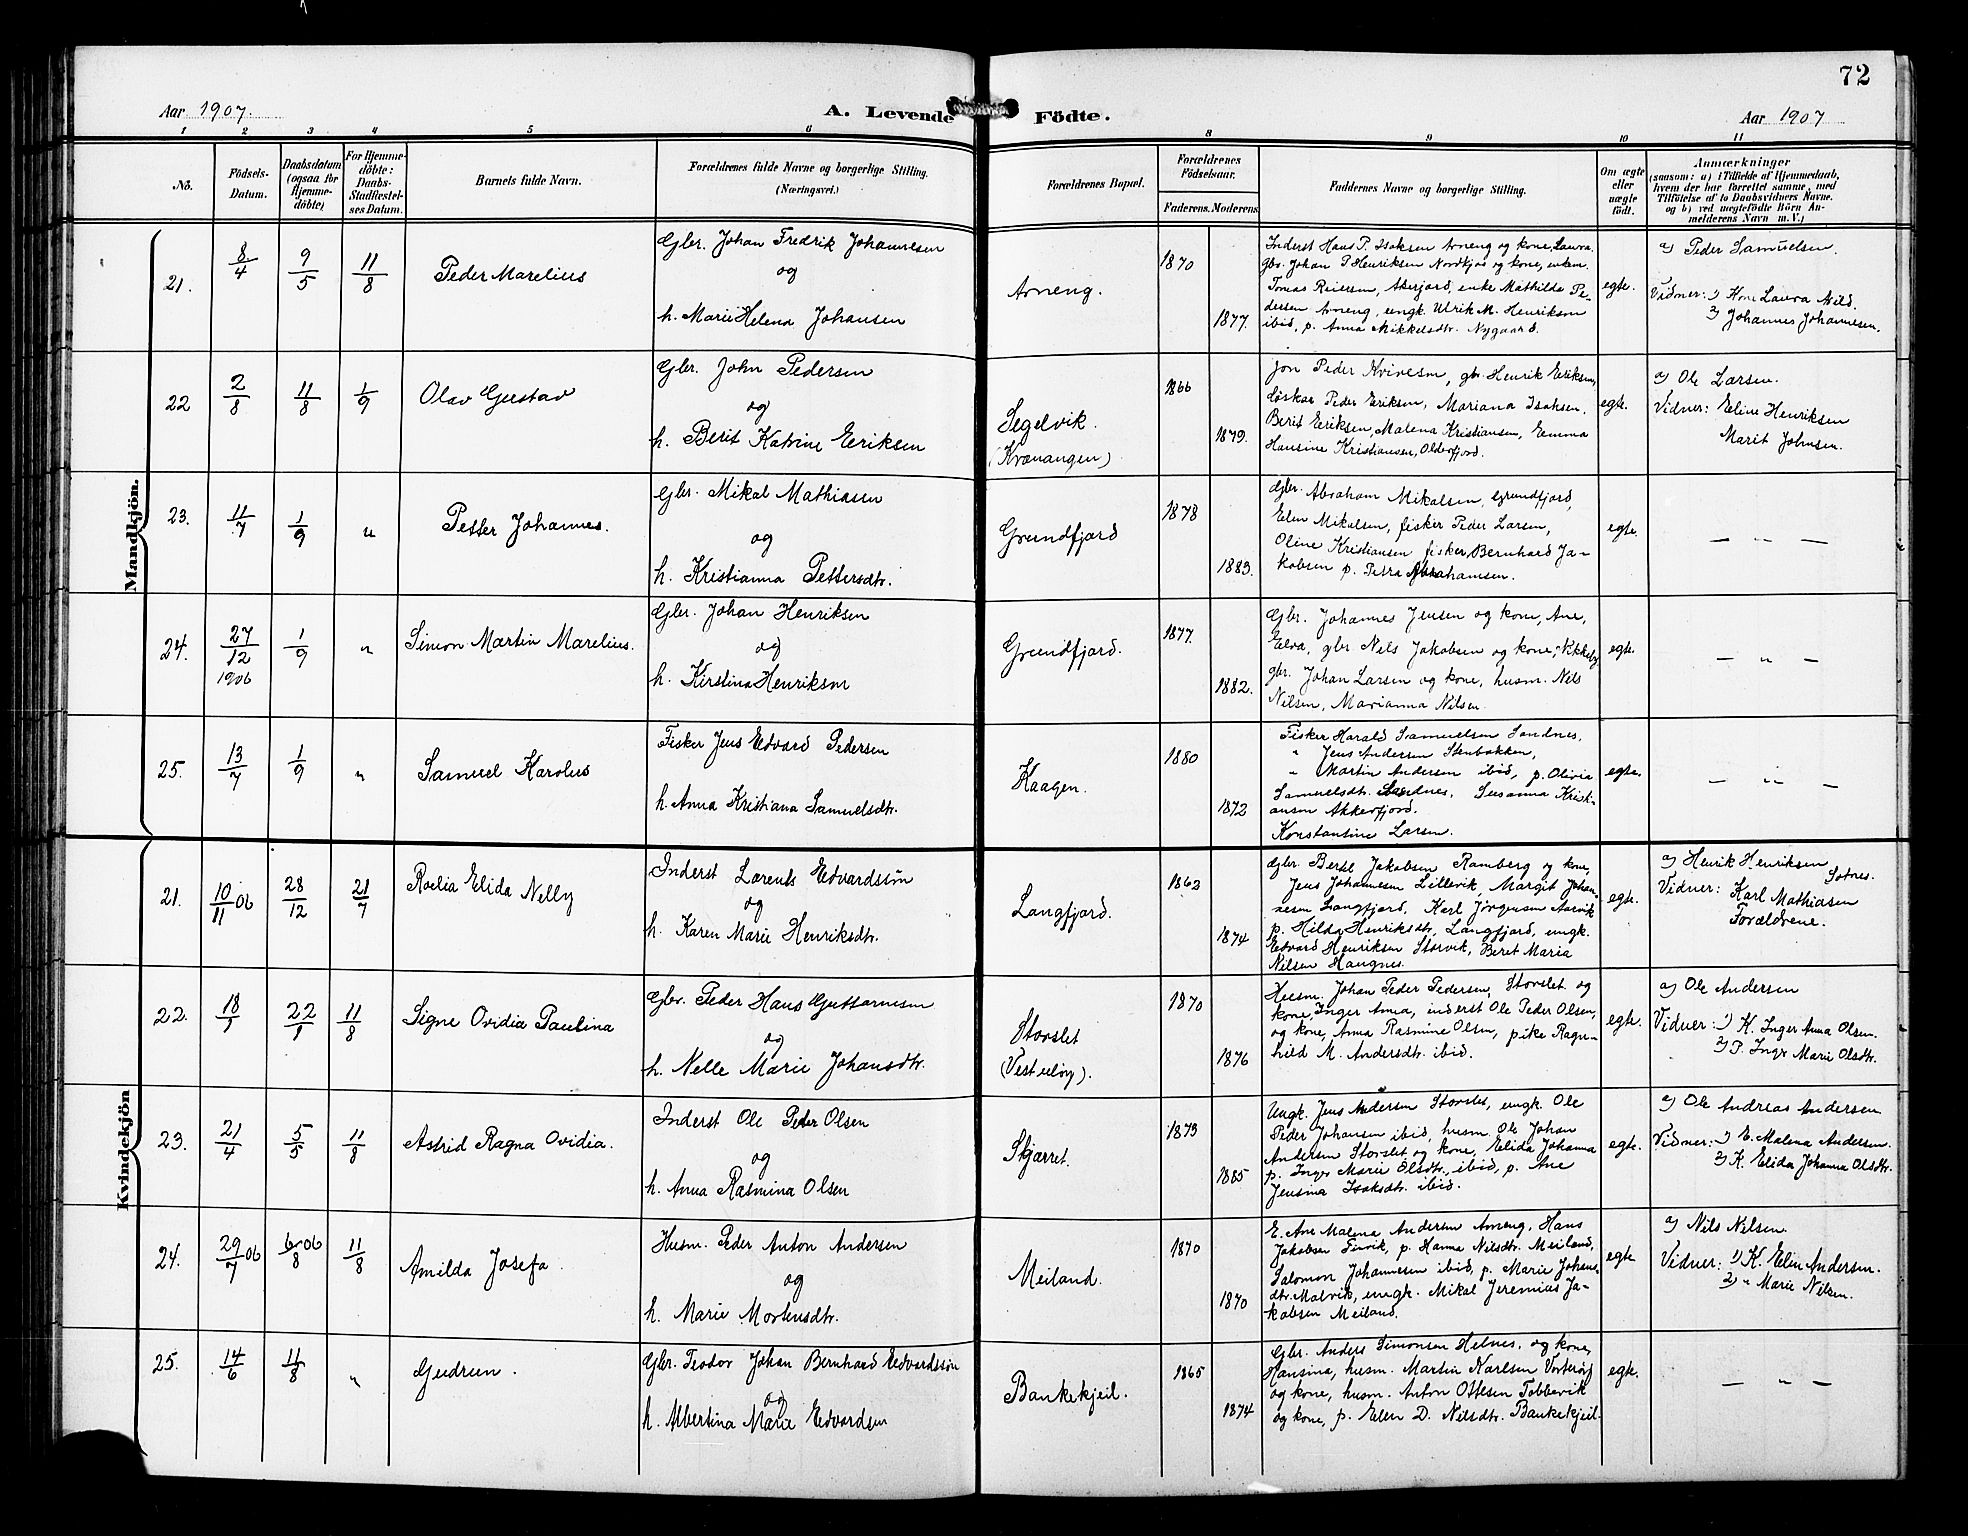 72
Aar 1907.
A. Levende Födte.
Aar 1907
1 2 3 4 5 6 8 9 10 11
No.
Födsels-
Datum.
Daabsdatum
(ogsaa for
Hjemme-
döbte)
For Hjemme-
döbte:
Daabs-
Stadfæstel-
ses Datum.
Barnets fulde Navn.
Forældrenes fulde Navne og borgerlige Stilling.
(Næringsvei.)
Forældrenes Bopæl.
Forældrenes
Födselsaar.
Faderens. Moderens.
Faddernes Navne og borgerlige Stilling.
Om ægte
eller
uægte
födt.
Anmærkninger
(saasom: a) i Tilfælde af Hjemmedaab,
hvem der har forrettet samme, med
Tilföielse af to Daabsvidners Navne,
og b) ved uægtefödte Börn An-
melderens Navn m. V.)
Mandkjön.
21.
8/4
9/5
11/8
Peder Marelius
Gbr. Johan Fredrik Johannesen
og
h. Marie Helena Johansen
Arneng.
1870
1877.
Inderst Hans P. Isaksen Arneng og kone, Laura.
gbr. Johan P. Henriksen Nordkjos og kone, enkem.
Tomas Reiersen, Akerfjord, enke Mathilda Pe-
dersen Arneng, ungk. Ulrik M. Henriksen
ibid, p. Anna Mikkelsdtr. Nygaard.
egte.
a) Peder Samuelsen
Vidner: 1) Kone Laura Nild.
2) Johannes Johannesen.
22
2/8
11/8
1/9
Olav Gustav
Gbr. John Pedersen
og
h. Berit Katrine Eriksen
Segelvik.
(Kvænangen)
1866
1879.
Jon Peder Kvivesen, gbr. Henrik Eriksen,
Løskar Peder Eriksen, Mariana Isaksen.
Berit Eriksen, Malena Kristiansen, Emma
Hansine Kristiansen, Olderfjord.
egte.
a) Ole Larsen.
Vidner: Eline Henriksen
Marit Johnsen.
23.
11/7
1/9
"
Petter Johannes.
Gbr. Mikal Mathiasen
og
h. Kristianna Pettersdtr.
Grundfjord
1878
1883.
Gbr. Abraham Mikalsen, Grundfjord,
Elen Mikalsen, fisker Peder Larsen,
Oline Kristiansen fisker, Bernhard Ja-
kobsen p. Petra Abrahamsen.
egte.
— " —
24.
27/12
1906
1/9
"
Simon Martin Marelius.
Gbr. Johan Henriksen
og
h. Kirstina Henriksen
Grundfjord.
1877.
1882.
Gbr. Johannes Jensen og kone, Ane,
Elva, gbr. Nils Jakobsen og kone, Nikkeby
gbr. Johan Larsen og kone, husm. Nils
Nilsen, Marianna Nilsen.
egte.
— " —
25.
13/7
1/9
"
Samuel Karolus
Fisker Jens Edvard Pedersen
h. Anna Kristiana Samuelsdtr.
Kaagen.
1880
1872
Fisker Harald Samuelsen Sandnes,
" Jens Andersen Stenbakken,
" Martin Andersen ibid, p. Olivia
Samuelsdtr. Sandnes, Susanna Kristi-
ansen Akkerfjord.
Konstantine Larsen.
egte.
— " —
Kvindekjön
21.
10/11 06
28/12
21/7
Roelia Elida Nelly
Inderst Lorents Edvardsson
og
h. Karen Marie Henriksdtr.
Langfjord.
1862
1874
Gbr. Bertel Jakobsen Ramberg og kone,
Jens Johannesen Lillevik, Margit Johan-
nesen Langfjord, Karl Jørgensen Aarvik
p. Hilda Henriksdtr, Langfjord, ungk.
Edvard Henriksen Storvik, Beret Maria
Nilsen Haugnes.
egte.
a) Henrik Henriksen
Sotnes.
Vidner: Karl Mathiasen
Forældrene.
22.
18/1
22/1
11/8
Signe Ovidia Paulina
Gbr. Peder Hans Guttormsen
og
h. Nelle Marie Johansdtr.
Storslet
(Vestuløy).
1870
1876
Husm. Johan Peder Pedersen, Storslet og
kone, Inger Anna, inderst Ole Peder Olsen,
og kone, Anna Rasmine Olsen, pike Ragn-
hild M. Andersdtr. ibid.
egte.
a) Ole Andersen
Vidner: 1) K. Inger Anna Olsen.
2) P. Ingr Marie Olsdtr.
23.
21/4
5/5
11/8
Astrid Ragna Ovidia.
Inderst Ole Peder Olsen
og
h. Anna Rasmina Olsen
Skjærret.
1873
1885
Ungk. Jens Andersen Storslet, ungk. Ole
Peder Johansen ibid, husm. Ole Johan
Andersen Storslet og kone, Elida Johanna
p. Inger Marie Olsdtr., ibid, p. Ane
Jensina Isaksdtr. ibid.
egte.
a) Ole Andreas Andersen
Vidner: 1) E. Malena Andersen.
2) K. Elida Johanna Olsdtr.
24.
29/7 06
6/8 06
11/8
Amilda Josefa.
Husm. Peder Anton Andersen
og
h. Marie Mortensdtr.
Meiland.
1870
1870
E. Ane Malena Andersen Arneng, Hans
Jakobsen Finvik, p. Hanna Nilsdtr. Meiland,
Salomon Johannesen ibid, p. Marie Johans-
dtr. Malvik, ungk. Mikal Jeremias Ja-
kobsen Meiland.
egte
a) Nils Nilsen.
Vidner: 1) K. Elen Andersen.
2) " Marie Nilsen.
25.
14/6
11/8
"
Gudrun.
Gbr. Teodor Johan Bernhard Edvardssön
og
h. Albertina Marie Edvardsen
Bankekjeil.
1865
1874
Gbr. Anders Simonsen Helnes, og kone,
Hansina, husm. Martin Karlsen Vorterøy
og kone, husm. Anton Ottesen Tobbevik
og kone, p. Elen D. Nilsdtr. Bankekjeil.
egte.
— " —